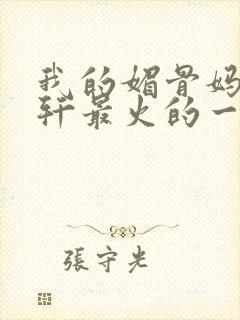 我的媚骨妈
轩最火的一
張守光